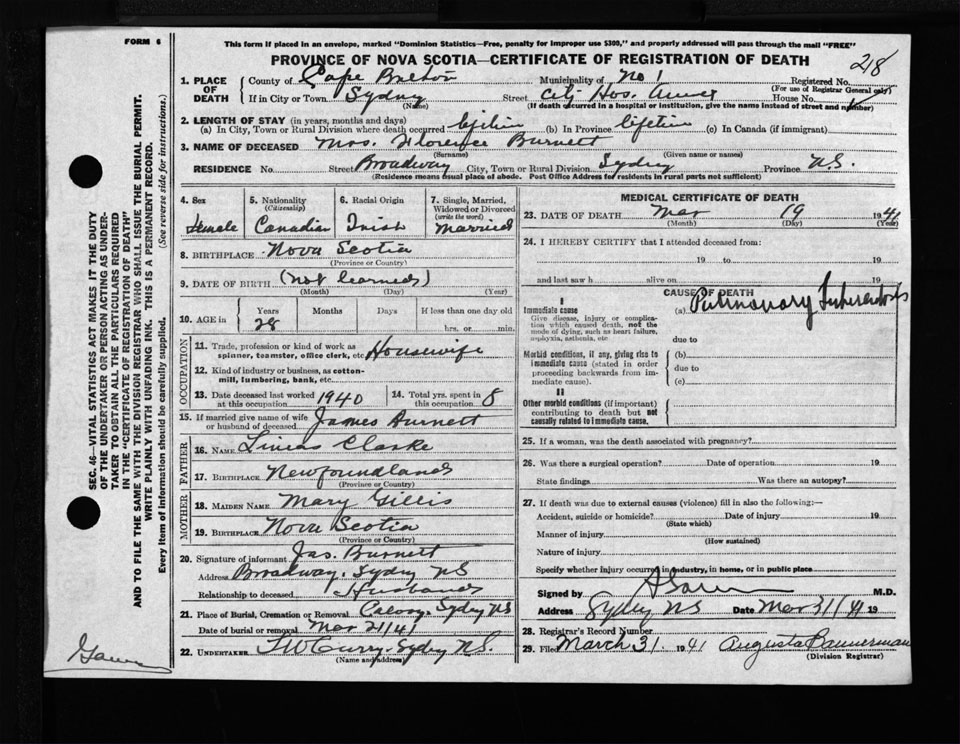 FORM 6
This form if placed in an envelope, marked "Dominion Statistics—Free, penalty for improper use $300," and properly addressed will pass through the mail "FREE"
PROVINCE OF NOVA SCOTIA—CERTIFICATE OF REGISTRATION OF DEATH
218
1. PLACE OF DEATH
County of Cape Breton Municipality of No 1 Registered No.
(For use of Registrar General only)
If in City or Town Sydney Street City Hos. Annex House No.
(Name) (If death occurred in a hospital or institution, give the name instead of street and number)
2. LENGTH OF STAY (in years, months and days)
(a) In City, Town or Rural Division where death occurred lifetim (b) In Province lifetim (c) In Canada (if immigrant)
3. NAME OF DECEASED Mrs. Florence Burnett
(Surname) (Given name or names)
RESIDENCE No. Street Broadway City, Town or Rural Division Sydney Province N.S.
(Residence means usual place of abode. Post Office Address for residents in rural parts not sufficient)
4. Sex Female
5. Nationality (Citizenship) Canadian
6. Racial Origin Irish
7. Single, Married, Widowed or Divorced (write the word) Married
8. BIRTHPLACE Nova Scotia
(Province or Country)
9. DATE OF BIRTH (not learned)
(Month) (Day) (Year)
10. AGE in Years Months Days If less than one day old
28 hrs. or min.
OCCUPATION
11. Trade, profession or kind of work as spinner, teamster, office clerk, etc. Housewife
12. Kind of industry or business, as cotton-mill, lumbering, bank, etc.
13. Date deceased last worked at this occupation 1940
14. Total yrs. spent in this occupation 8
15. If married give name of wife or husband of deceased James Burnett
FATHER
16. NAME Linus Clarke
17. BIRTHPLACE Newfoundland
(Province or Country)
MOTHER
18. MAIDEN NAME Mary Gillis
19. BIRTHPLACE Nova Scotia
(Province or Country)
20. Signature of informant Jas. Burnett
Address Broadway, Sydney NS
Relationship to deceased Husband
21. Place of Burial, Cremation or Removal Calvary, Sydney NS
Date of burial or removal Mar 21/41
22. UNDERTAKER T W Curry - Sydney N.S.
(Name and address)
MEDICAL CERTIFICATE OF DEATH
23. DATE OF DEATH Mar 19 1941
(Month) (Day) (Year)
24. I HEREBY CERTIFY that I attended deceased from:
19 to 19
and last saw h alive on 19
CAUSE OF DEATH
I
Immediate cause
Give disease, injury or complication which caused death, not the mode of dying, such as heart failure, asphyxia, asthenia, etc
(a) Pulmonary Tuberculosis
due to
Morbid conditions, if any, giving rise to immediate cause (stated in order proceeding backwards from immediate cause).
(b)
due to
(c)
II
Other morbid conditions (if important) contributing to death but not causally related to immediate cause.
25. If a woman, was the death associated with pregnancy?
26. Was there a surgical operation? Date of operation 19
State findings Was there an autopsy?
27. If death was due to external causes (violence) fill in also the following:—
Accident, suicide or homicide? Date of injury 19
(State which)
Manner of injury
(How sustained)
Nature of injury
Specify whether injury occurred in industry, in home, or in public place
Signed by M.D.
Address Sydney NS Date Mar 31/41 19
28. Registrar's Record Number
29. Filed March 31. 1941 Augusta Bannerman
(Division Registrar)
SEC. 46—VITAL STATISTICS ACT MAKES IT THE DUTY
OF THE UNDERTAKER OR PERSON ACTING AS UNDER-
TAKER TO OBTAIN ALL THE PARTICULARS REQUIRED
IN THE "CERTIFICATE OF REGISTRATION OF DEATH"
AND TO FILE THE SAME WITH THE DIVISION REGISTRAR WHO SHALL ISSUE THE BURIAL PERMIT.
WRITE PLAINLY WITH UNFADING INK. THIS IS A PERMANENT RECORD.
Every item of information should be carefully supplied. (See reverse side for instructions.)